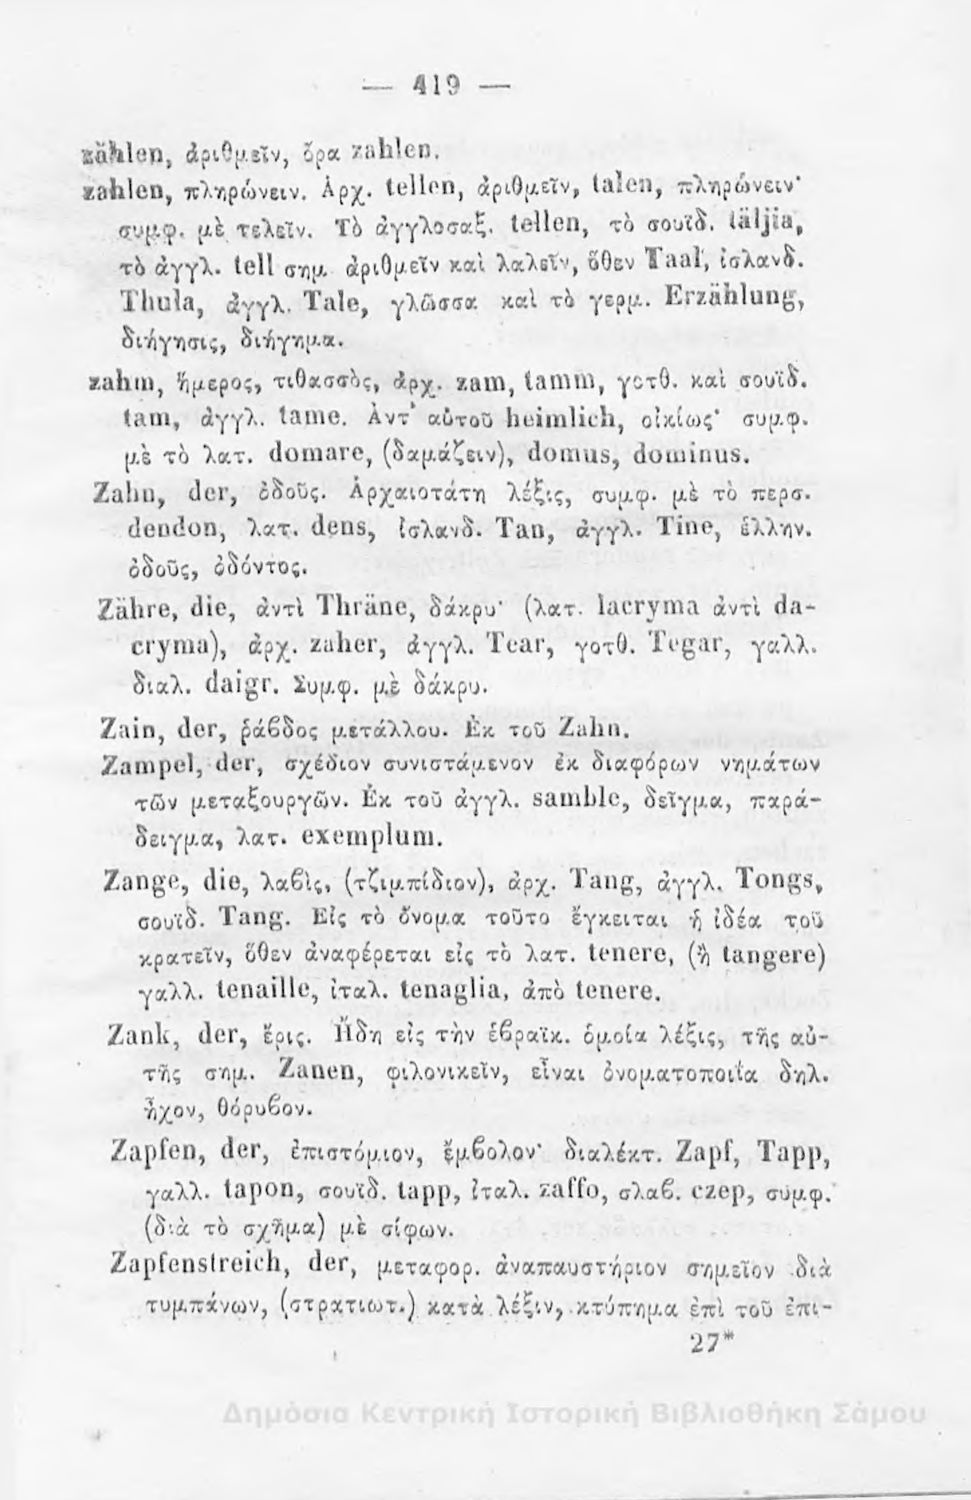 — 419 —
zählen, ἀριθμεῖν, ὅρα zahlen.
zahlen, πληρώνειν. Ἀρχ. tellen, ἀριθμεῖν, talen, πληρώνειν·
συμφ. μὲ τελεῖν. Τὸ ἀγγλοσαξ. tellen, τὸ σουϊδ. täljia,
τὸ ἀγγλ. tell σημ. ἀριθμεῖν καὶ λαλεῖν, ὅθεν Taal, ἰσλανδ.
Thula, ἀγγλ. Tale, γλῶσσα καὶ τὸ γερμ. Erzählung,
διήγησις, διήγημα.
zahm, ἥμερος, τιθασσὸς, ἀρχ. zam, tamm, γοτθ. καὶ σουϊδ.
tam, ἀγγλ. tame. Ἀντ' αὐτοῦ heimlich, οἰκίως· συμφ.
μὲ τὸ λατ. domare, (δαμάζειν), domus, dominus.
Zahn, der, ὀδοῦς. Ἀρχαιοτάτη λέξις, συμφ. μὲ τὸ περσ.
dendon, λατ. dens, ἰσλανδ. Tan, ἀγγλ. Tine, ἑλλην.
ὀδοῦς, ὀδόντος.
Zähre, die, ἀντὶ Thräne, δάκρυ· (λατ. lacryma ἀντὶ da-
cryma), ἀρχ. zaher, ἀγγλ. Tear, γοτθ. Tegar, γαλλ.
διαλ. daigr. Συμφ. μὲ δάκρυ.
Zain, der, ῥάβδος μετάλλου. Ἐκ τοῦ Zahn.
Zampel, der, σχέδιον συνιστάμενον ἐκ διαφόρων νημάτων
τῶν μεταξουργῶν. Ἐκ τοῦ ἀγγλ. samble, δεῖγμα, παρά-
δειγμα, λατ. exemplum.
Zange, die, λαβὶς, (τζιμπίδιον), ἀρχ. Tang, ἀγγλ. Tongs,
σουϊδ. Tang. Εἰς τὸ ὄνομα τοῦτο ἔγκειται ἡ ἰδέα τοῦ
κρατεῖν, ὅθεν ἀναφέρεται εἰς τὸ λατ. tenere, (ἢ tangere)
γαλλ. tenaille, ἰταλ. tenaglia, ἀπὸ tenere.
Zank, der, ἔρις. Ἤδη εἰς τὴν ἑβραϊκ. ὁμοία λέξις, τῆς αὐ-
τῆς σημ. Zanen, φιλονικεῖν, εἶναι ὀνοματοποιΐα δηλ.
ἦχον, θόρυβον.
Zapfen, der, ἐπιστόμιον, ἔμβολον· διαλέκτ. Zapf, Tapp,
γαλλ. tapon, σουϊδ. tapp, ἰταλ. zaffo, σλαβ. czep, συμφ.
(διὰ τὸ σχῆμα) μὲ σίφων.
Zapfenstreich, der, μεταφορ. ἀναπαυστήριον σημεῖον διὰ
τυμπάνων, (στρατιωτ.) κατὰ λέξιν, κτύπημα ἐπὶ τοῦ ἐπι-
27*
Δημόσια Κεντρική Ιστορική Βιβλιοθήκη Σάμου